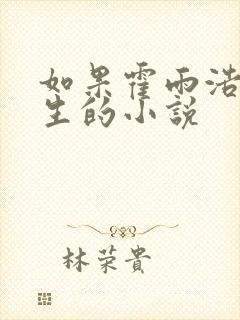 如果霍雨浩
生的小説
林荣貴